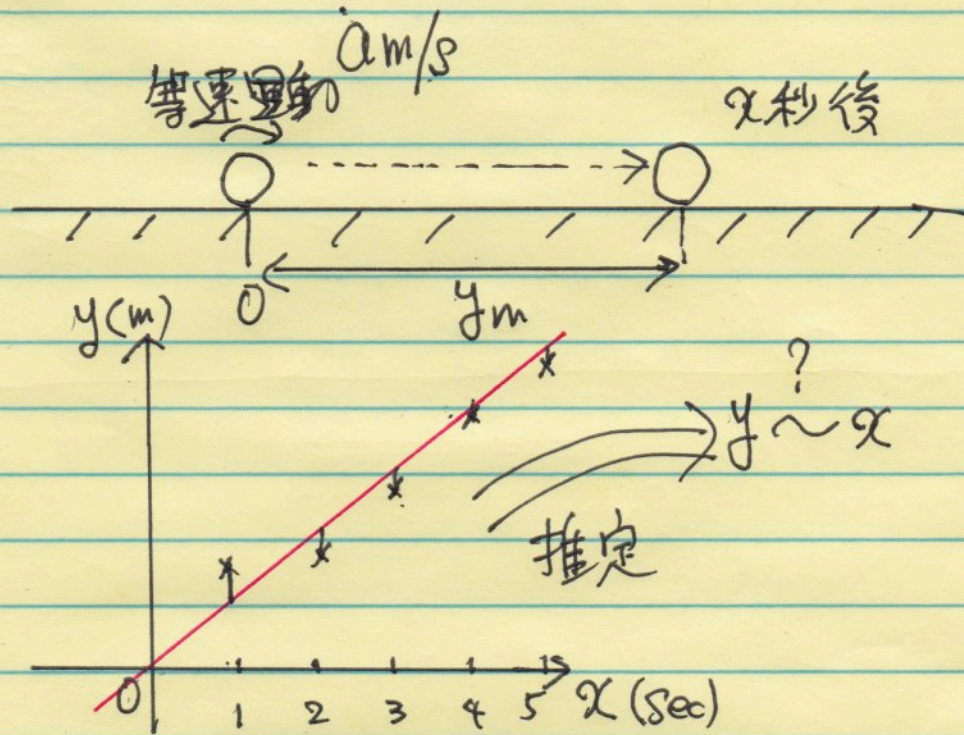 a m/s
等速運動
x秒後
0
ym
y(m)
?
y~x
推定
0 1 2 3 4 5 x (sec)